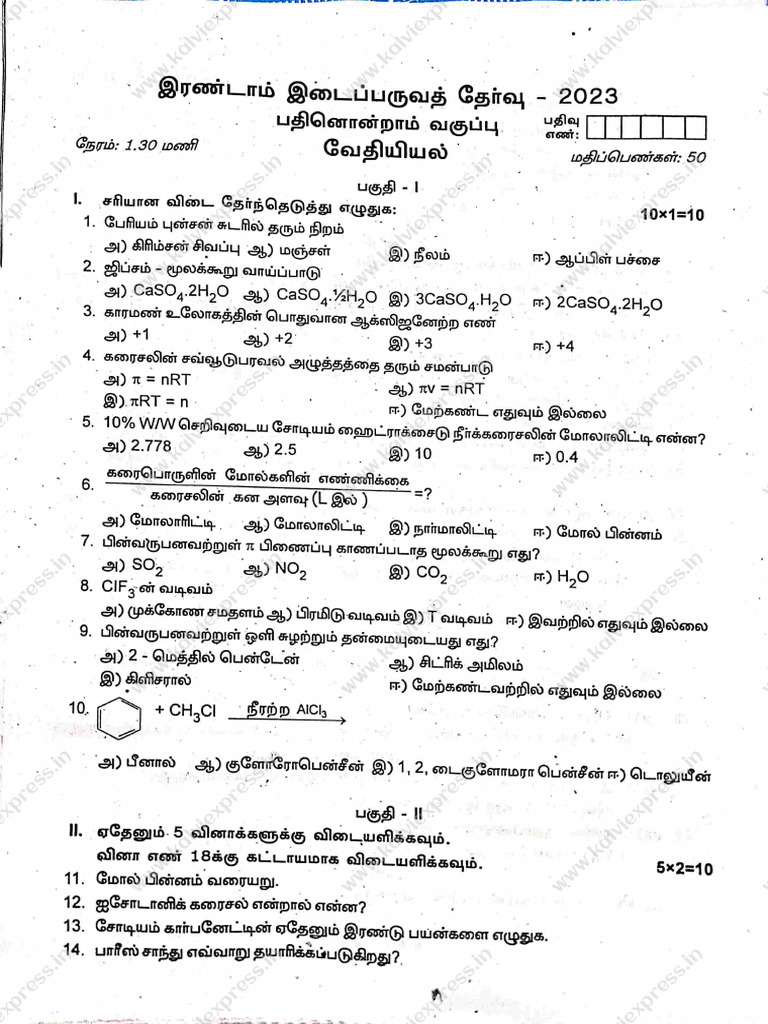 இரண்டாம் இடைப்பருவத் தேர்வு - 2023
பதினொன்றாம் வகுப்பு
பதிவு எண்:
நேரம்: 1.30 மணி
வேதியியல்
மதிப்பெண்கள்: 50
பகுதி - I
I. சரியான விடை தேர்ந்தெடுத்து எழுதுக: 10×1=10
1. பேரியம் புன்சன் சுடரில் தரும் நிறம்
அ) கிரிம்சன் சிவப்பு ஆ) மஞ்சள் இ) நீலம் ஈ) ஆப்பிள் பச்சை
2. ஜிப்சம் - மூலக்கூறு வாய்ப்பாடு
அ) CaSO₄.2H₂O ஆ) CaSO₄.½H₂O இ) 3CaSO₄.H₂O ஈ) 2CaSO₄.2H₂O
3. காரமண் உலோகத்தின் பொதுவான ஆக்ஸிஜனேற்ற எண்
அ) +1 ஆ) +2 இ) +3 ஈ) +4
4. கரைசலின் சவ்வூடுபரவல் அழுத்தத்தை தரும் சமன்பாடு
அ) π = nRT ஆ) πv = nRT
இ) πRT = n ஈ) மேற்கண்ட எதுவும் இல்லை
5. 10% W/W செறிவுடைய சோடியம் ஹைட்ராக்சைடு நீர்க்கரைசலின் மோலாலிட்டி என்ன?
அ) 2.778 ஆ) 2.5 இ) 10 ஈ) 0.4
6. கரைபொருளின் மோல்களின் எண்ணிக்கை
கரைசலின் கன அளவு (L இல் ) =?
அ) மோலாரிட்டி ஆ) மோலாலிட்டி இ) நார்மாலிட்டி ஈ) மோல் பின்னம்
7. பின்வருபனவற்றுள் π பிணைப்பு காணப்படாத மூலக்கூறு எது?
அ) SO₂ ஆ) NO₂ இ) CO₂ ஈ) H₂O
8. ClF₃ ன் வடிவம்
அ) முக்கோண சமதளம் ஆ) பிரமிடு வடிவம் இ) T வடிவம் ஈ) இவற்றில் எதுவும் இல்லை
9. பின்வருபனவற்றுள் ஒளி சுழற்றும் தன்மையுடையது எது?
அ) 2 - மெத்தில் பென்டேன் ஆ) சிட்ரிக் அமிலம்
இ) கிளிசரால் ஈ) மேற்கண்டவற்றில் எதுவும் இல்லை
10. + CH₃Cl நீரற்ற AlCl₃
அ) பீனால் ஆ) குளோரோபென்சீன் இ) 1, 2, டைகுளோமரா பென்சீன் ஈ) டொலுயீன்
பகுதி - II
II. ஏதேனும் 5 வினாக்களுக்கு விடையளிக்கவும்.
வினா எண் 18க்கு கட்டாயமாக விடையளிக்கவும். 5×2=10
11. மோல் பின்னம் வரையறு.
12. ஐசோடானிக் கரைசல் என்றால் என்ன?
13. சோடியம் கார்பனேட்டின் ஏதேனும் இரண்டு பயன்களை எழுதுக.
14. பாரீஸ் சாந்து எவ்வாறு தயாரிக்கப்படுகிறது?
www.kalviexpress.in